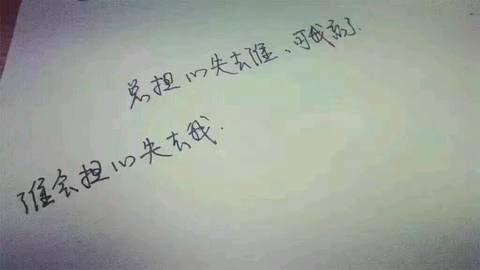 总担心失去谁、可我忘了.
谁会担心失去我.